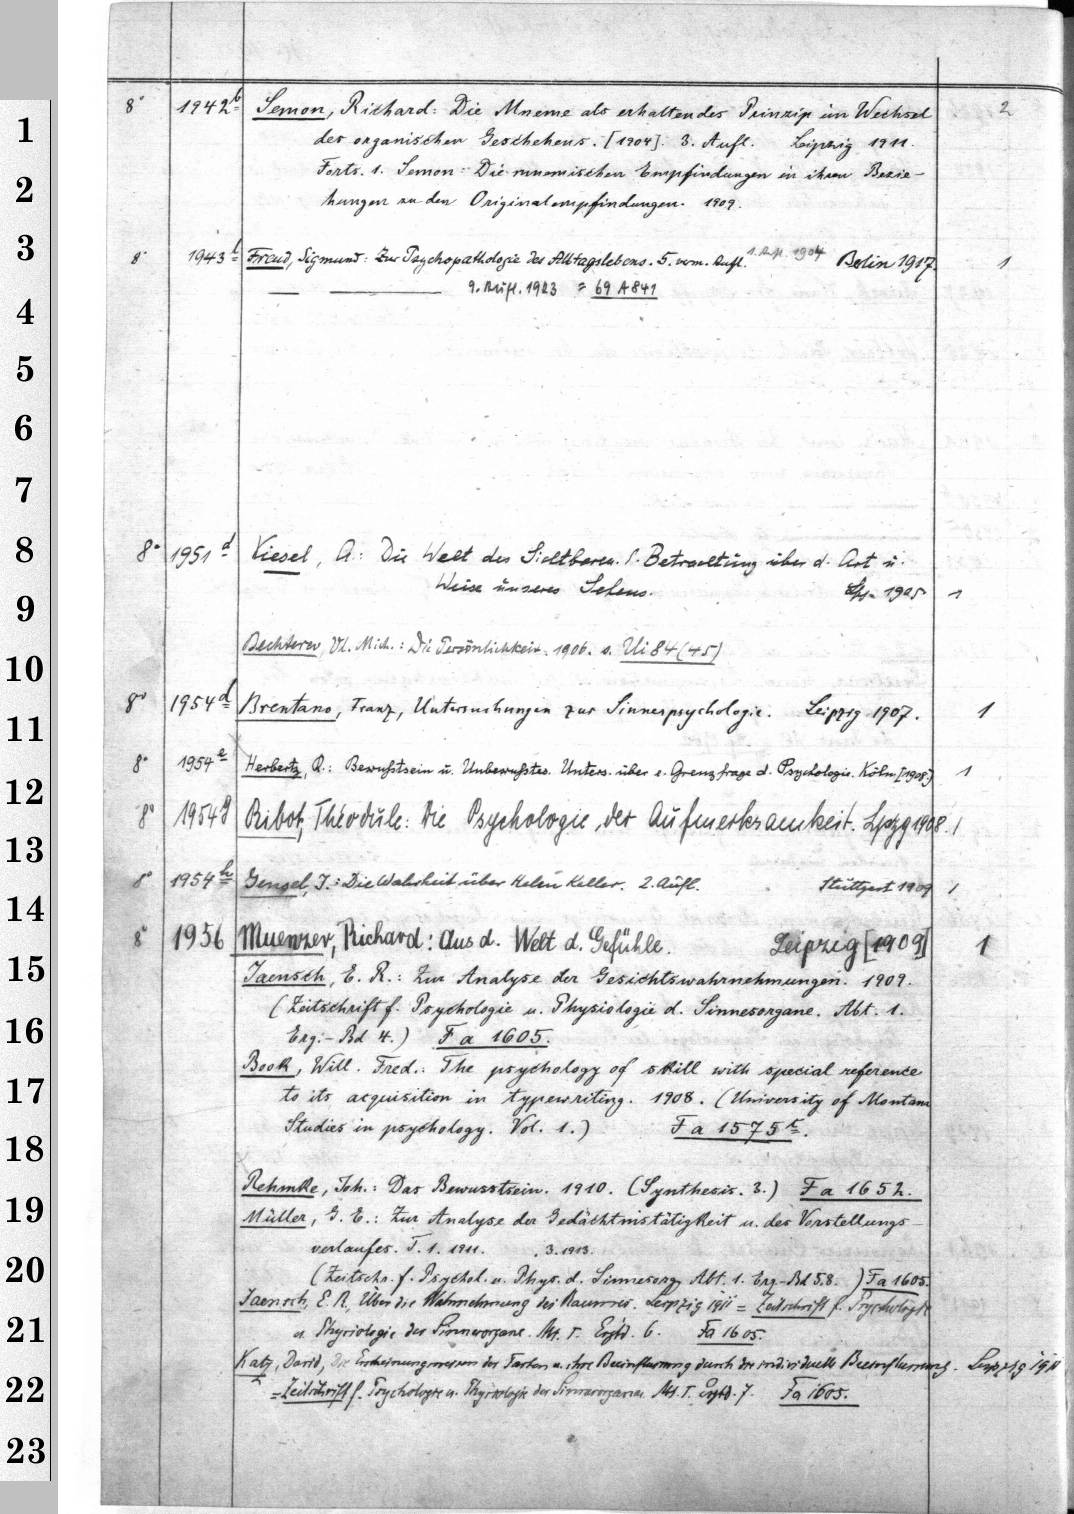 8° 1942b Semon, Richard: Die Mneme als erhaltendes Prinzip im Wechsel 2
1
des organischen Geschehens. [1904]. 3. Aufl. Leipzig 1911.
Forts. 1. Semon: Die mnemischen Empfindungen in ihren Bezie-
2
hungen zu den Originalempfindungen. 1909.
3
8° 1943 Freud, Sigmund: Zur Psychopathologie des Alltagslebens. 5. verm. Aufl. 1. Aufl. 1904 Berlin 1917. 1
— —— 9. Aufl. 1923 = 69 A 841
4
5
6
7
8
8° 1951d Kiesel, A.: Die Welt des Sichtbaren. Betrachtung über d. Art u.
Weise unseres Sehens. Lpz. 1905 1
9
Bechterew, Vl. Mich.: Die Persönlichkeit. 1906. s. Ui 84 (45)
10
8° 1954d Brentano, Franz, Untersuchungen zur Sinnespsychologie. Leipzig 1907. 1
11
8° 1954e Herbertz, R.: Bewußtsein u. Unbewußtes. Unters. über e. Grenzfrage d. Psychologie. Köln [1908] 1
12
8° 1954g Ribot, Théodule: Die Psychologie der Aufmerksamkeit. Lpzg 1908. 1
13
8° 1954h Gensel, J.: Die Wahrheit über Helen Keller. 2. Aufl. Stuttgart 1909 1
14
8° 1956 Muenzer, Richard: Aus d. Welt d. Gefühle. Leipzig [1909] 1
15
Jaensch, E. R.: Zur Analyse der Gesichtswahrnehmungen. 1909.
(Zeitschrift f. Psychologie u. Physiologie d. Sinnesorgane. Abt. 1.
16
Erg.-Bd 4.) Fa 1605.
Book, Will. Fred.: The psychology of skill with special reference
17
to its acquisition in typewriting. 1908. (University of Montana
Studies in psychology. Vol. 1.) Fa 1575c.
18
Rehmke, Joh.: Das Bewusstsein. 1910. (Synthesis. 3.) Fa 1652.
19
Müller, G. E.: Zur Analyse der Gedächtnistätigkeit u. des Vorstellungs-
verlaufes. T. 1. 1911. , 3. 1913.
20
(Zeitschr. f. Psychol. u. Phys. d. Sinnesorg. Abt. 1. Erg.-Bd 5.8. ) Fa 1605.
Jaensch, E. R., Über die Wahrnehmung des Raumes. Leipzig 1911 = Zeitschrift f. Psychologie
21
u. Physiologie der Sinnesorgane. Abt. I. Ergbd. 6. Fa 1605.
Katz, David, Die Erscheinungsweisen der Farben u. ihre Beeinflussung durch die individuelle Beeinflussung. Leipzig 1911
22
= Zeitschrift f. Psychologie u. Physiologie der Sinnesorgane. Abt. I. Ergbd. 7. Fa 1605.
23